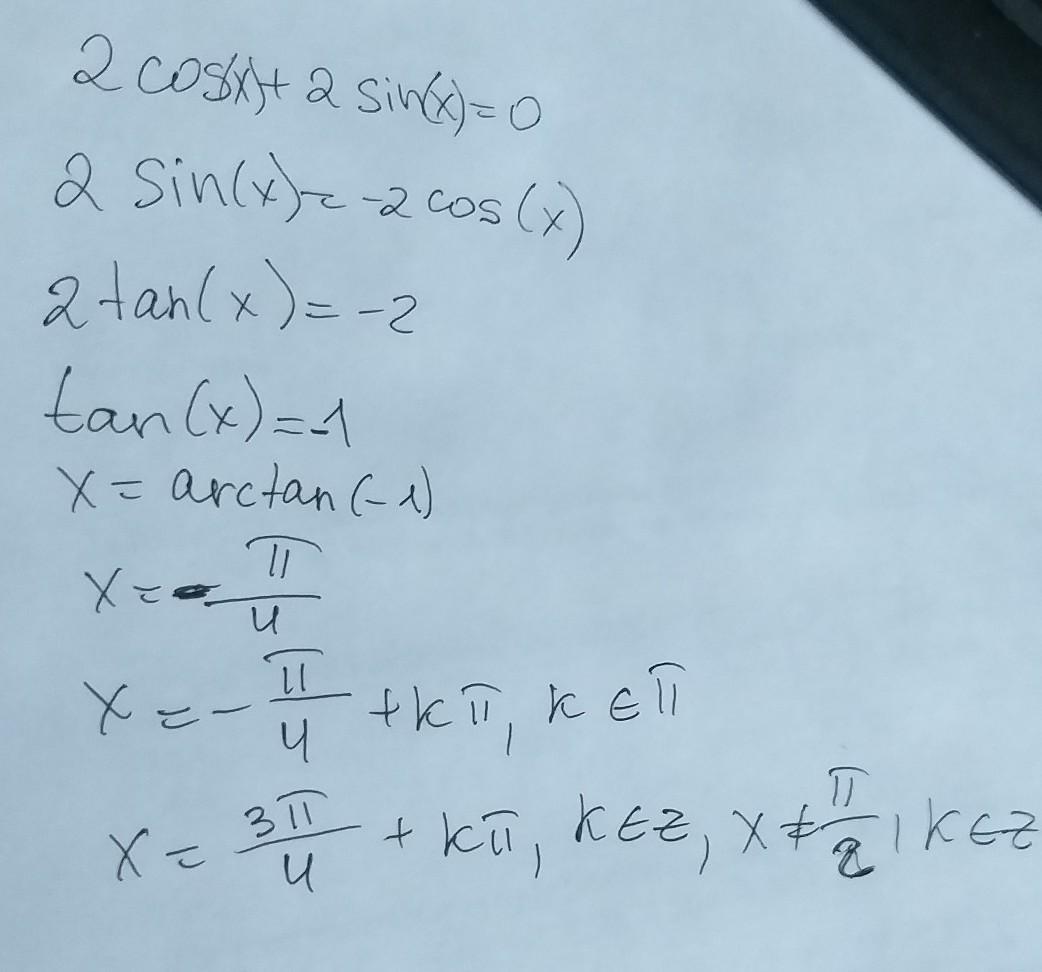 2 cos(x)+ 2 sin(x)=0
2 sin(x)=-2 cos(x)
2 tan(x)=-2
tan(x)=-1
x= arctan(-1)
x=-π/4
x=-π/4 +kπ, k∈π
x=3π/4 + kπ, k∈z, x≠π/2, k∈z